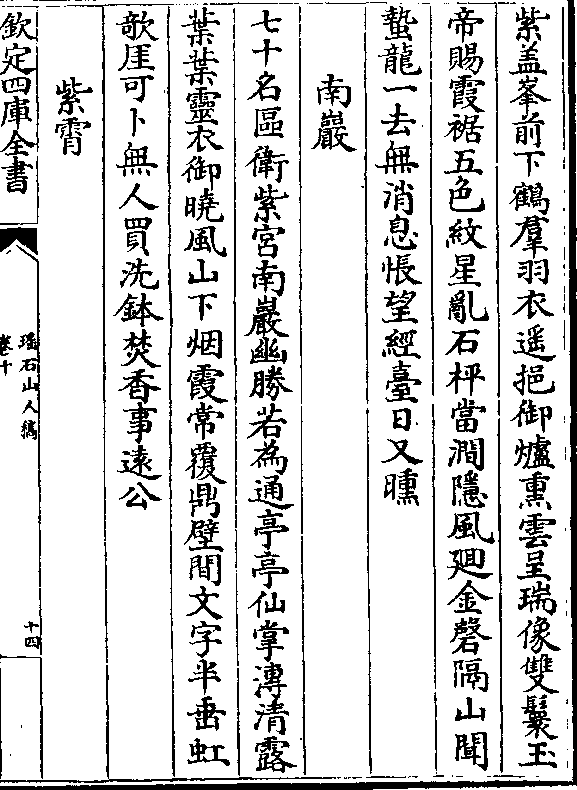 紫盖峯前下鶴羣羽衣遥挹御爐熏雲呈瑞像雙鬟玉
帝賜霞裾五色紋星亂石枰當澗隱風廻金磬隔山聞
蟄龍一去無消息悵望經臺日又曛
南巖
七十名區衛紫宮南巖幽勝若為通亭亭仙掌漙清露
葉葉靈衣御曉風山下烟霞常覆鼎壁間文字半垂虹
欹厓可卜無人買洗鉢焚香事遠公
紫霄
欽定四庫全書
瑶石山人稿
卷十
十四